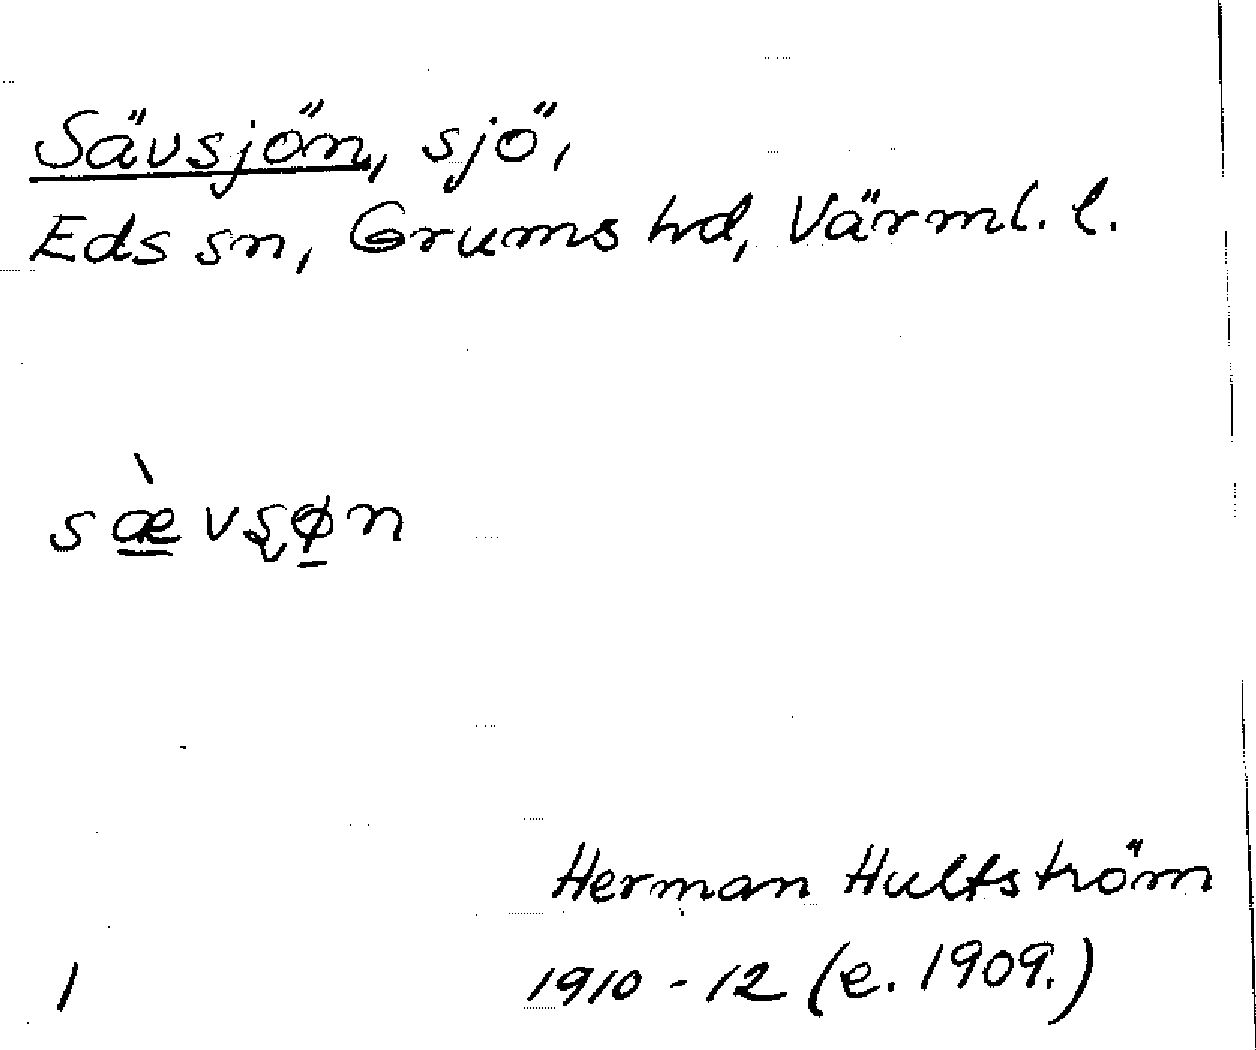 Sävsjön, sjö,
Eds sn, Grums hd, Värml. l.
sæ̲̀vʂø̲n
Herman Hultström
1 1910-12 (e. 1909.)